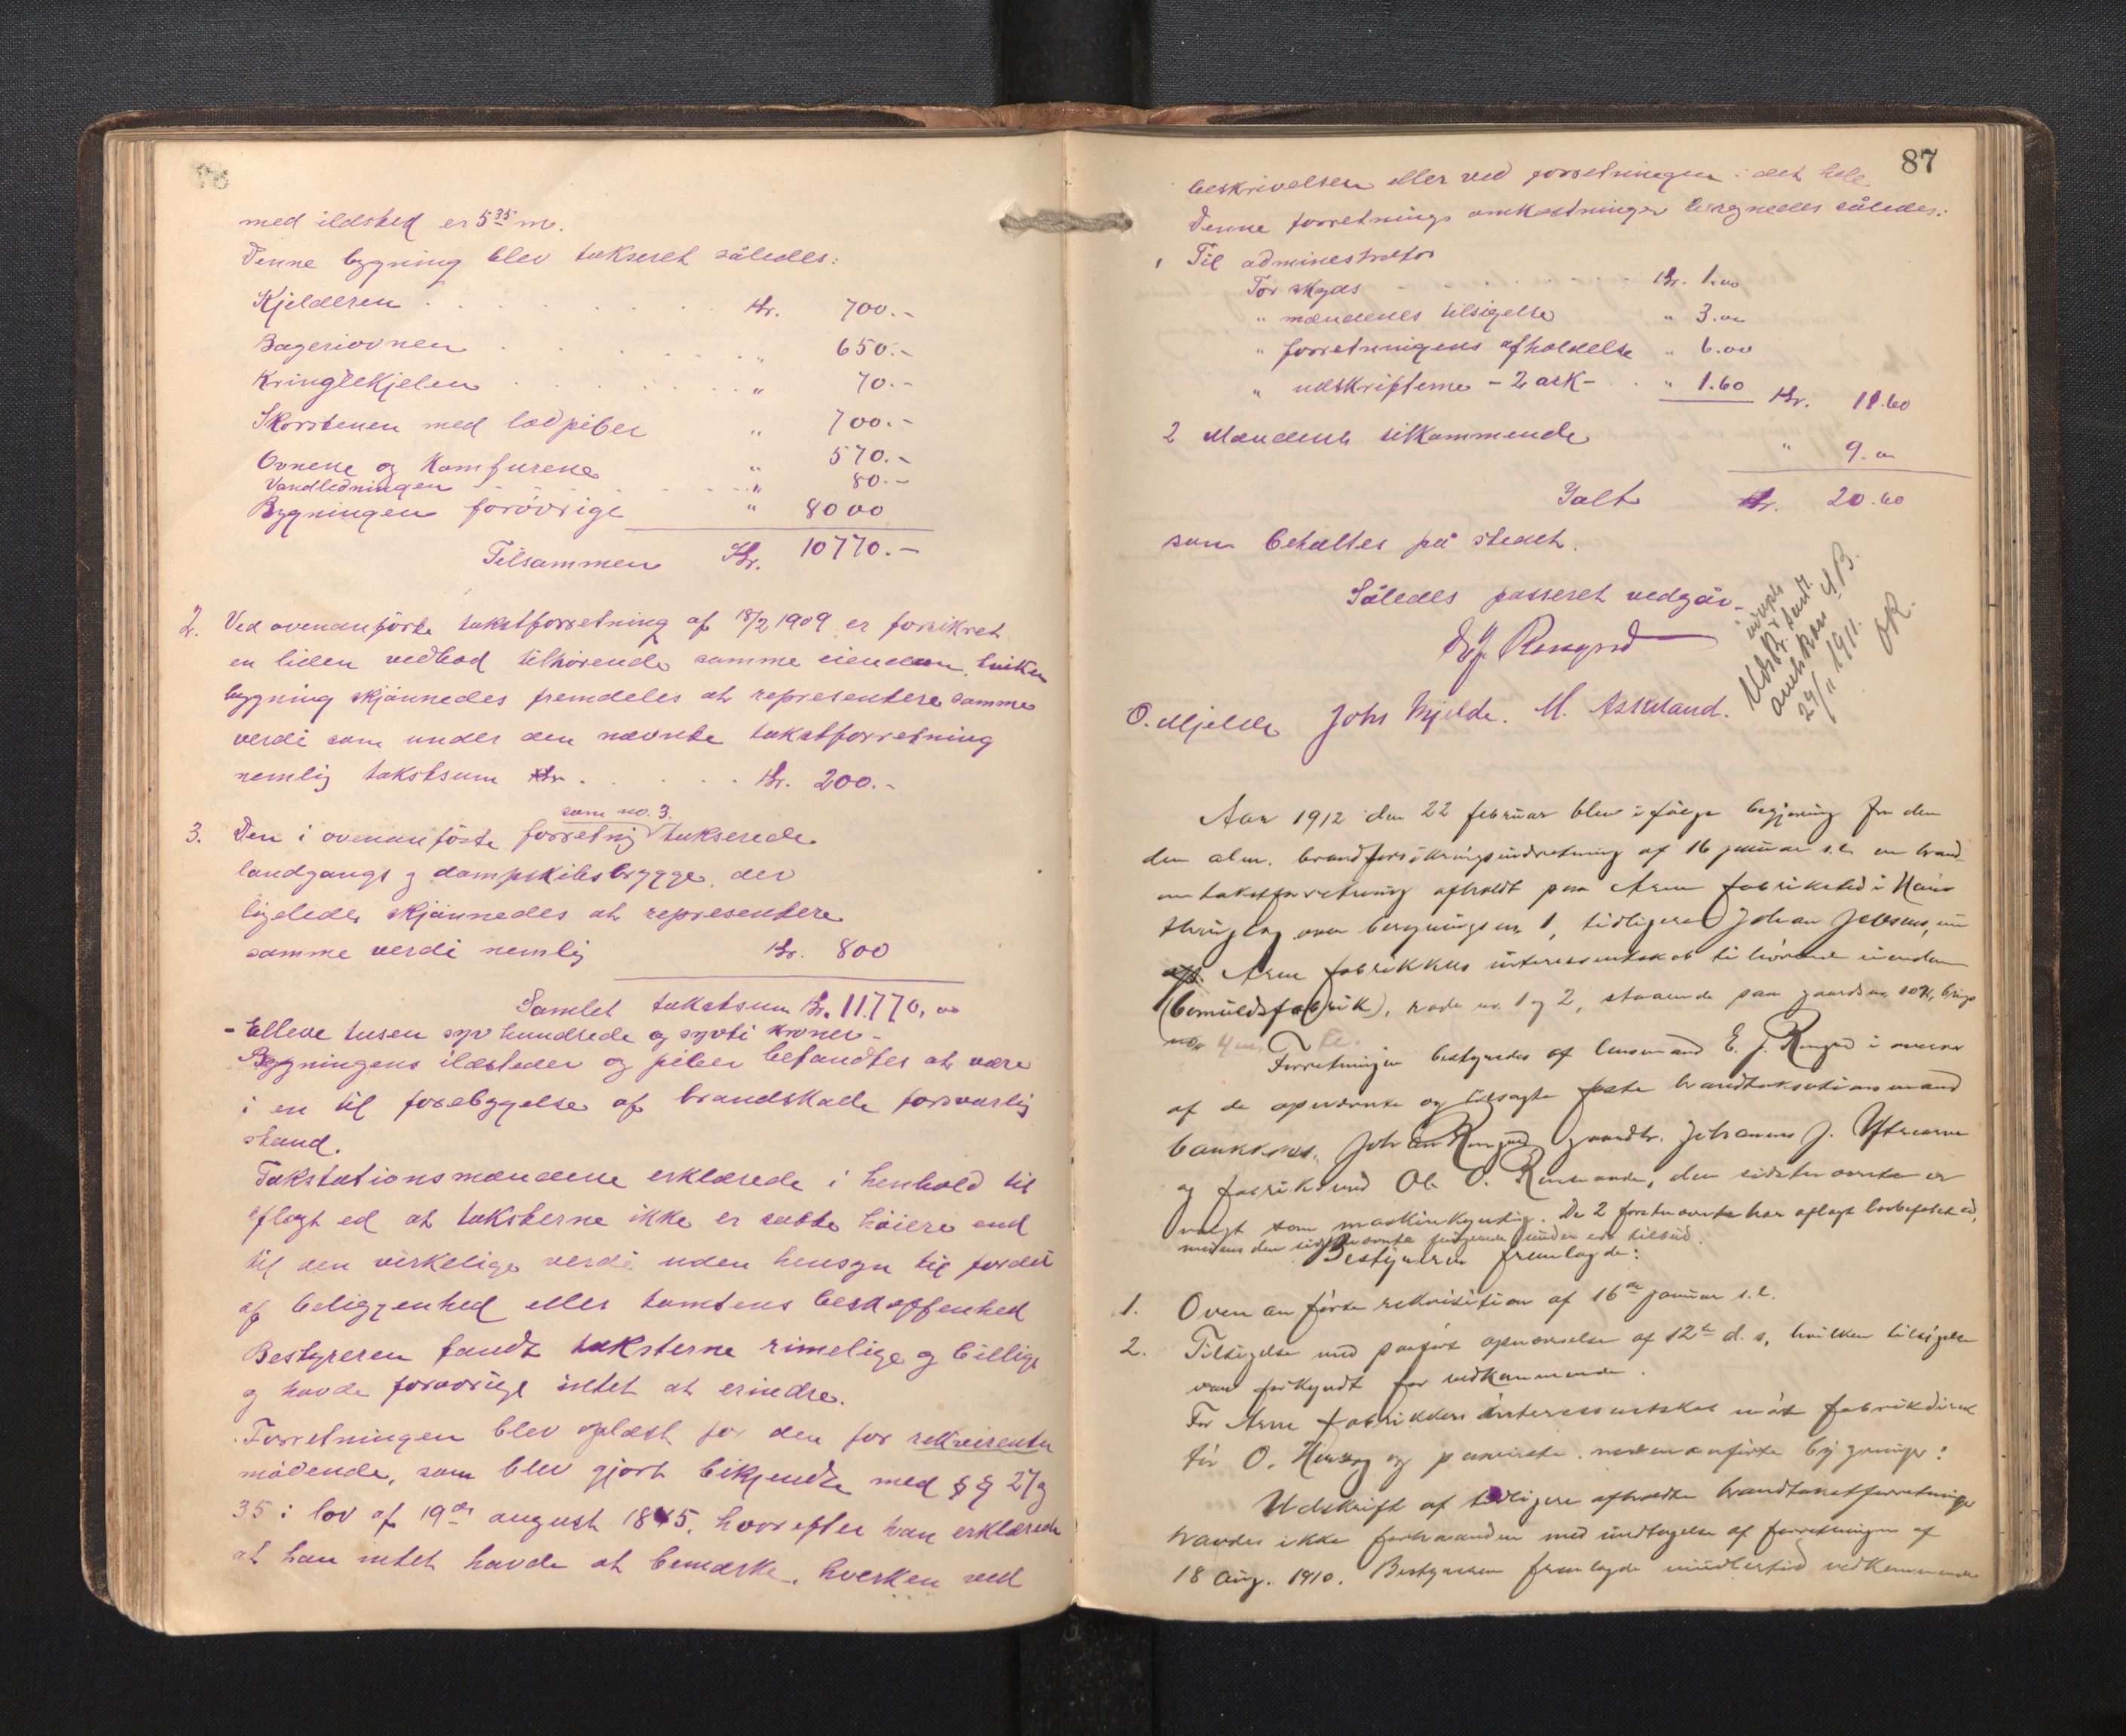 med ildsted er 5³⁵ m.
Denne bygning blev takseret således:
Kjelderen . . . . Kr. 700.-
Bageriovnen . . . . " 650.-
Kringlekjelen . . . . " 70.-
Skorstenen med lodpiber " 700.-
Ovnene og Komfurene " 570.-
Vandledningen . . . . " 80.-
Bygningen forøvrigt " 8000
Tilsammen Kr. 10770.-
2. Ved ovenanførte takstforretning af 18/2 1909 er forsikret
en liden vedbod tilhørende samme eiendom, hvilken
bygning skjønnedes fremdeles at representere samme
verdi som under den nævnte takstforretning
nemlig takstsum Kr. . . . . Kr. 200.-
som no. 3.
3. Den i ovenanførte forretnig takserede
landgangs og dampskibsbrygge, der
ligeledes skjønnedes at representere
samme verdi nemlig Kr. 800
Samlet takstsum Kr. 11.770,00
- Elleve tusen syv hundrede og sytti kroner -
Bygningens ildsteder og piber befandtes at være
i en til forebyggelse af brandskade forsvarlig
stand.
Takstationsmændene erklærede i henhold til
aflagt ed at taksterne ikke er satte høiere end
til den virkelige verdi uden hensyn til fordel
af beliggenhed eller tomtens beskaffenhed
Bestyreren fandt taksterne rimelige og billige
og havde forøvrigt intet at erindre.
Forretningen blev oplæst for den for rekvirenten
mødende, som blev gjort bekjendt med §§ 27 og
35 i lov af 19de august 1845, hvorefter han erklærede
at han intet havde at bemærke, hverken ved
87
beskrivelsen eller ved forretningen i det hele
Denne forretnings omkostninger beregnedes således:
1 Til administrator
For skyds . . . . Kr. 1.00
" mændenes tilsigelse " 3.00
" forretningens afholdelse " 6.00
" udskrifterne - 2 ark - . . " 1.60 Kr. 11.60
2 Mændenes tilkommende " 9.00
Ialt Kr. 20.60
som betaltes på stedet.
Således passeret vedgår
O. Mjelde Johs Mjelde. M. Askeland.
Udskr. sendt
29/11 1911.
OR.
Aar 1912 den 22 februar blev ifølge begjæring fra den
den alm. brandforsikringsindretning af 16 januar s.l. en brand-
takstforretning afholdt paa Arne fabriksted i Haus
thinglag over bygnings nr. 1, tidligere Johan Jebsens, nu
Arne fabrikkers interessentskab tilhørende eiendom
(bomuldsfabrik), rode nr. 1 og 2, staaende paa gaards nr.
Forretningen bestyredes af lensmand E. J. i overvær
af de opnævnte og tilsagte faste brandtakstationsmænd
gaardbr. Johannes J.
og Ole O. den sidstnævnte er
valgt som maskinkyndig. De 2 førstnævnte har aflagt lovbefalet ed,
medens den sidstnævnte
Bestyreren fremlagde:
1. Ovenanførte rekvisition af 16de januar s.l.
2. Tilsigelse med paaført opnævnelse af 12te d. s, hvilken tilsigelse
var forkyndt for vedkommende.
For Arne fabrikkers interessentskab mødt fabrikdirek
tør O. og paaviste nedenanførte bygninger:
Udskrift af tidligere afholdte brandtakstforretninger
havdes ikke forhaanden med undtagelse af forretningen af
18 Aug. 1910. Bestyreren fremlagde imidlertid vedkommende